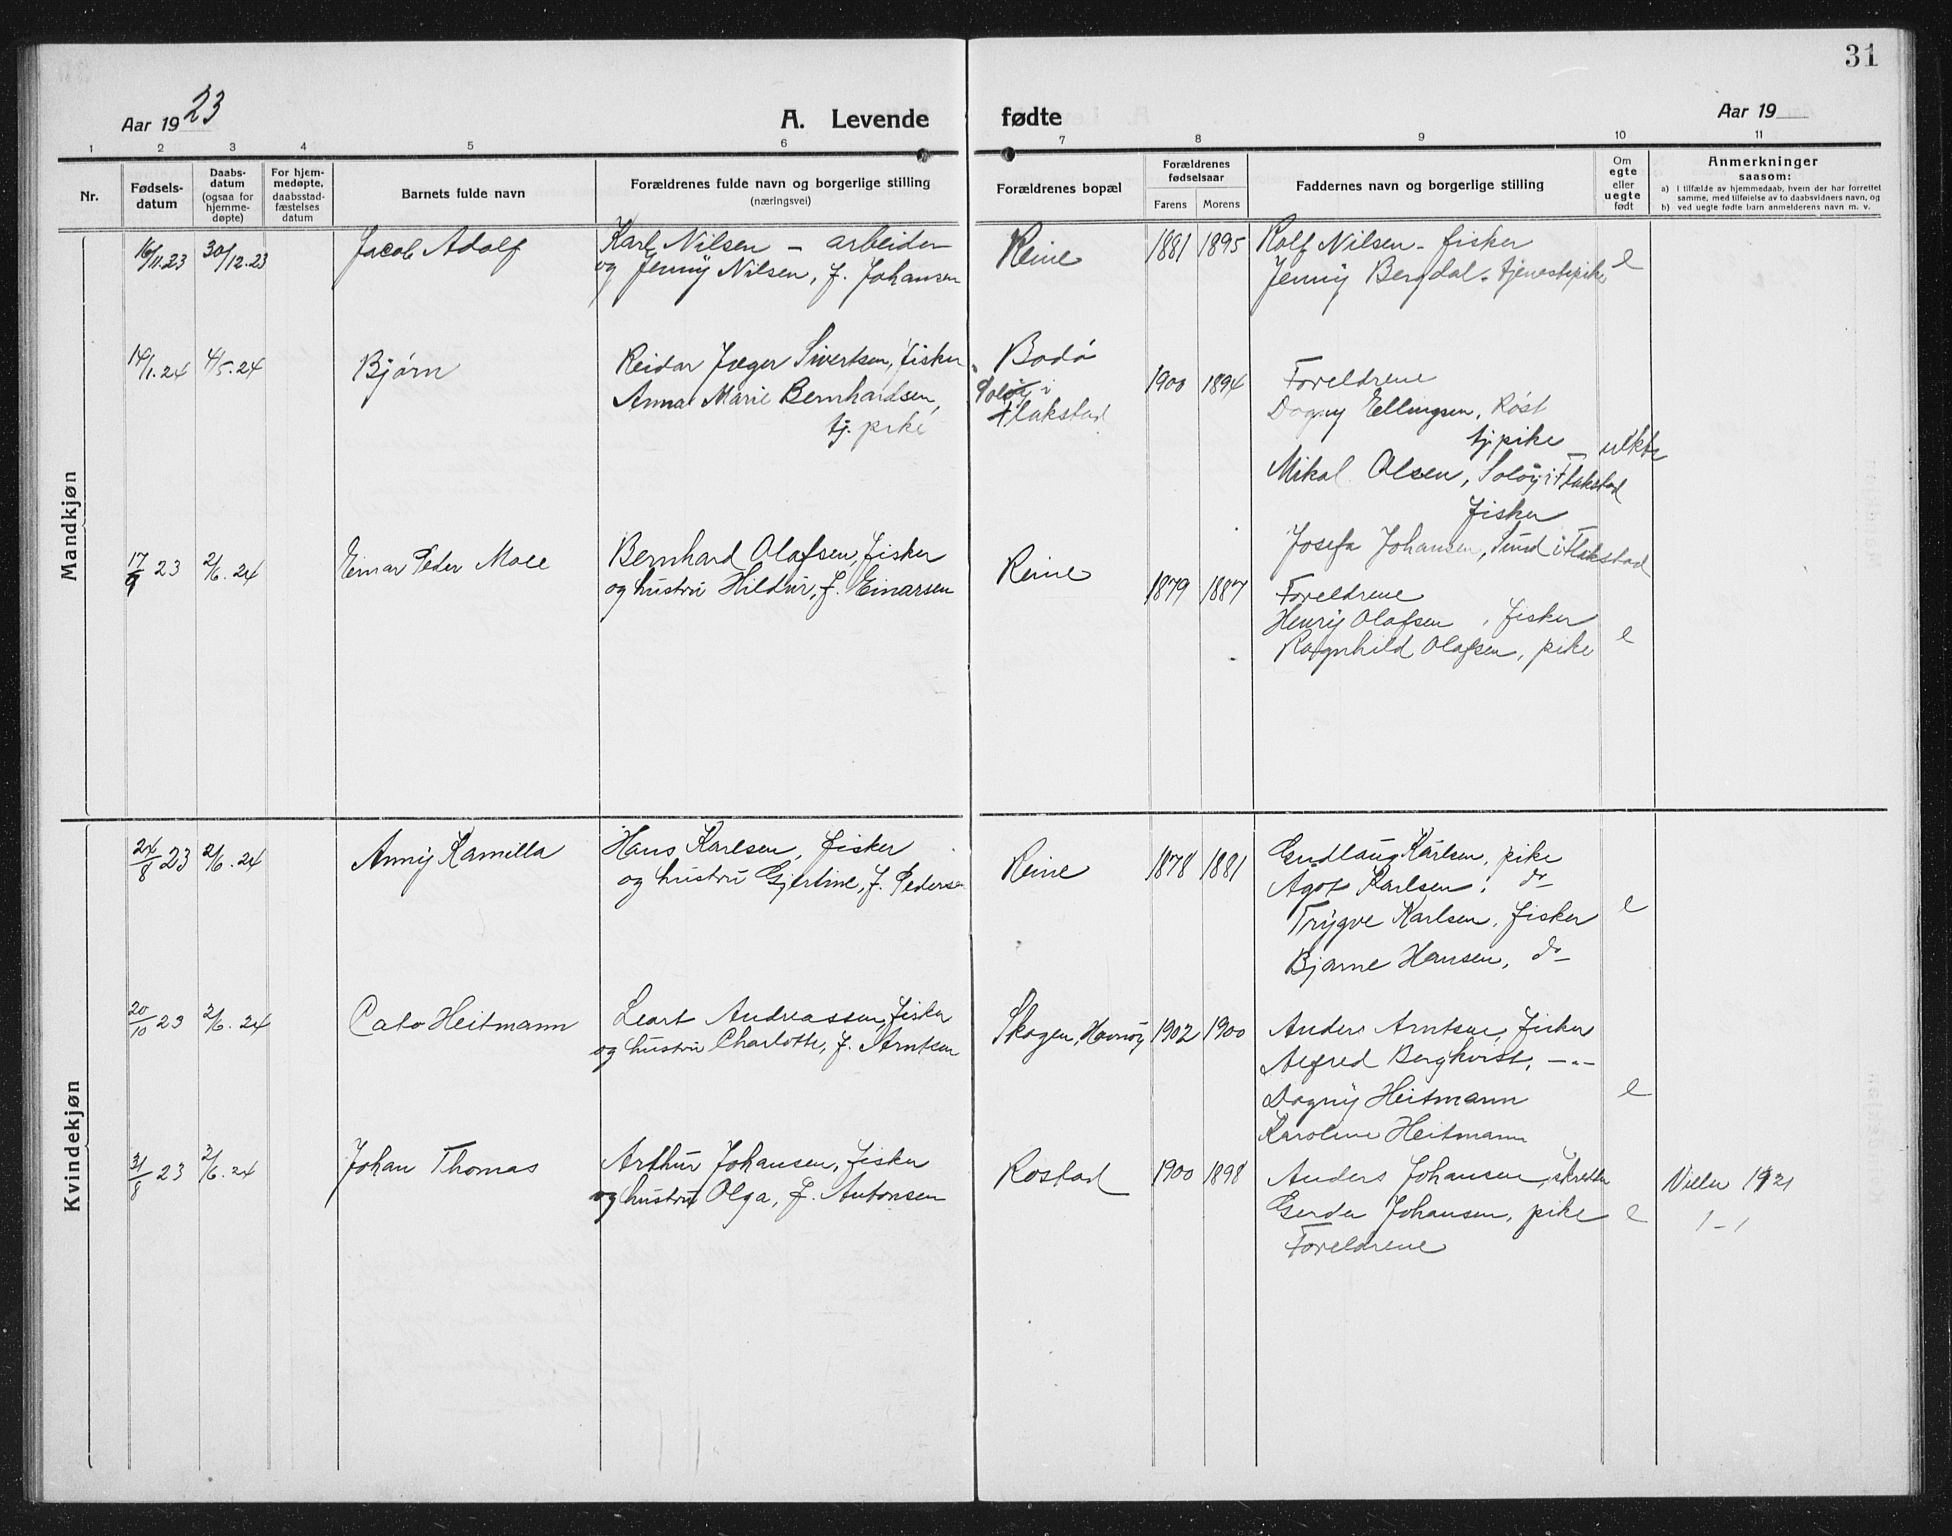 31
Aar 1923
A. Levende fødte
Aar 19
1 2 3 4 5 6 7 8 9 10 11
Nr.
Fødsels-
datum
Daabs-
datum
(ogsaa for
hjemme-
døpte)
For hjem-
medøpte,
daabsstad-
fæstelses
datum
Barnets fulde navn
Forældrenes fulde navn og borgerlige stilling
(næringsvei)
Forældrenes bopæl
Forældrenes
fødselsaar
Farens Morens
Faddernes navn og borgerlige stilling
Om
egte
eller
uegte
født
Anmerkninger
saasom:
a) I tilfælde av hjemmedaab, hvem der har forrettet
samme, med tilføielse av to daabsvidners navn, og
b) ved uegte fødte barn anmelderens navn m. v.
Mandkjøn
16/11.23 30/12.23 Jacob Adolf
Karl Nilsen – arbeider
og Jenny Nilsen, f. Johansen
Reine 1881 1895
Rolf Nilsen - fisker
Jenny Bergdal - tjenestepike
e
14/1.24 4/5.24 Bjørn
Reidar Jæger Sivertsen, fisker
Anna Marie Bernhardsen,
tj. pike
Bodø
Soløy i
Flakstad
1900 1894
Foreldrene
Dagny Ellingsen, Røst
tj.pike
Mikal Olsen, Soløy i Flakstad
fisker
Josefa Johansen, Sund i Flakstad
uekte
17/9 23 2/6.24 Einar Peder Moe
Bernhard Olafsen, fisker
og hustru Hildur, f. Einarsen
Reine 1879 1887
Foreldrene
Henry Olafsen, fisker
Ragnhild Olafsen, pike
e
Kvindekjøn
24/8 23 2/6.24 Anny Kamilla
Hans Karlsen, fisker
og hustru Gjertine, f. Pedersen
Reine 1878 1881
Gudlaug Karlsen, pike
Agot Karlsen, do
Trygve Karlsen, fisker
Bjarne Hansen, do
e
20/10 23 2/6.24 Cato Heitmann
Leart Andreassen, fisker
og hustru Charlotte, f. Arntsen
Skogen, Havnøy 1902 1900
Anders Arntsen, fisker
Alfred Berghvist, -"-
Dagny Heitmann
Karoline Heitmann
e
31/8 23 2/6.24 Johan Thomas
Arthur Johansen, fisker
og hustru Olga, f. Antonsen
Rostad 1900 1898
Anders Johansen, skredder
Gerda Johansen, pike
Foreldrene
e
1921